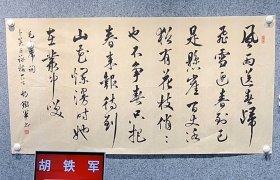 風雨送春歸
飛雪迎春到已
是懸崖百丈冰
猶有花枝俏〻
也不爭春只把
春來報待到
山花爛漫時她
在叢中笑
毛 詞
卜算子詠梅
胡铁军